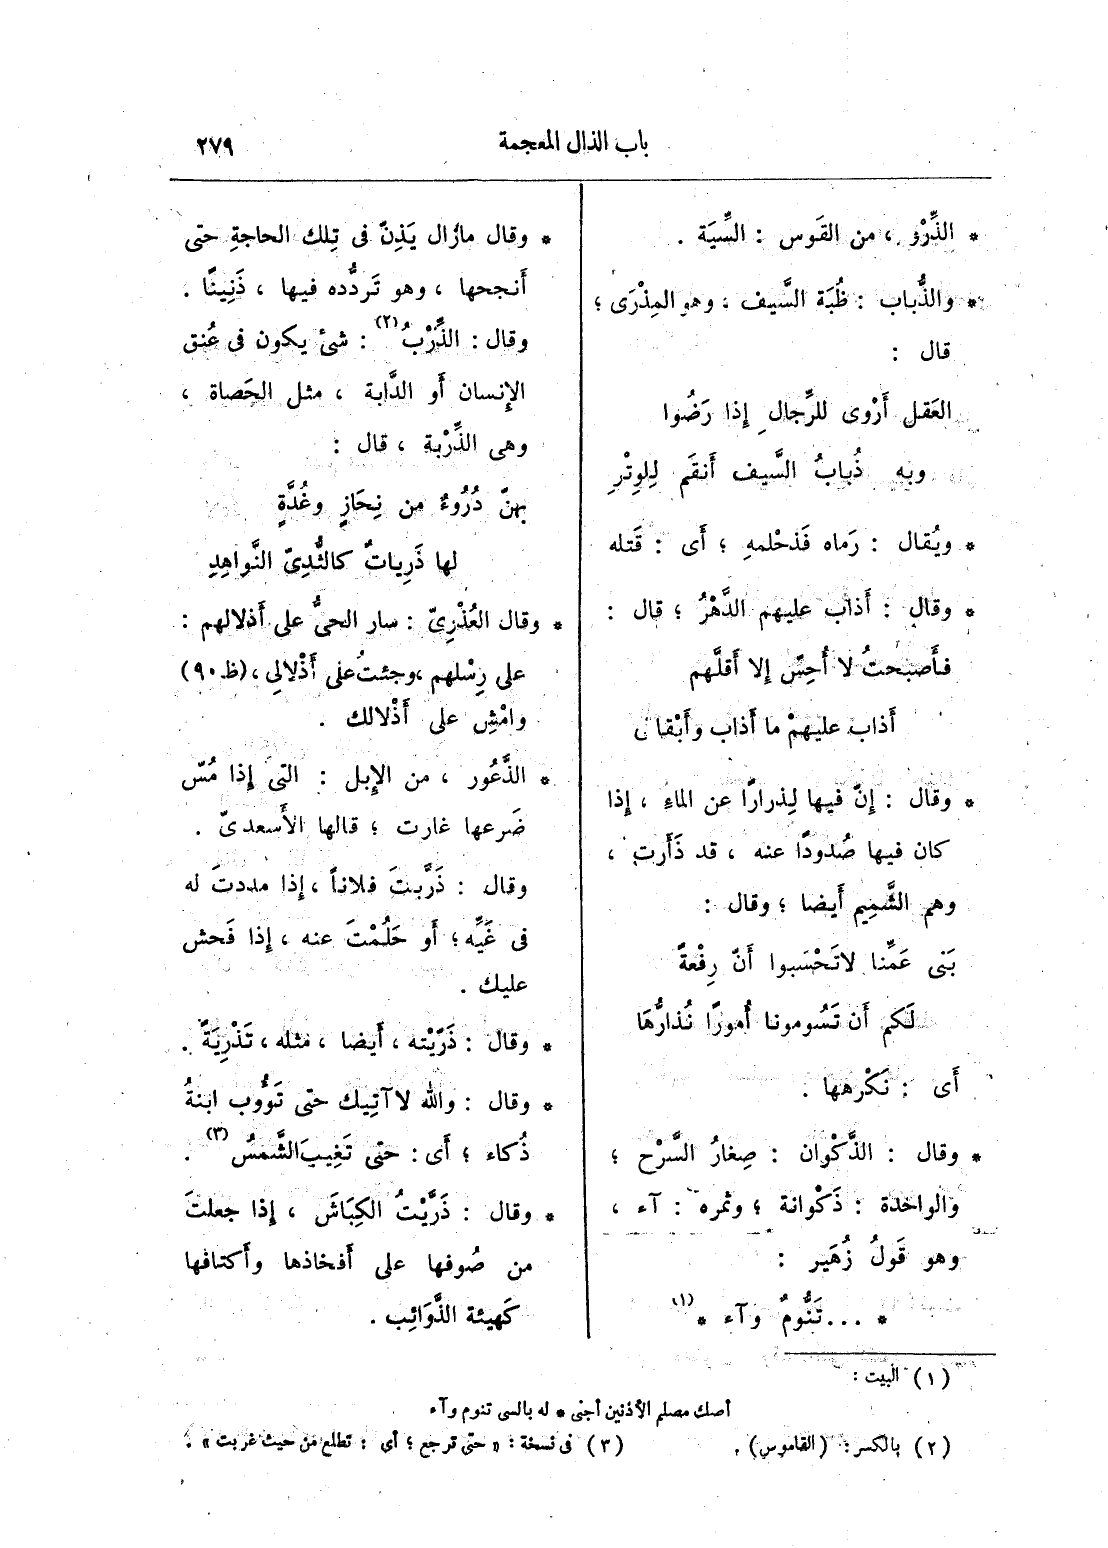 باب الذال المعجمة
٢٧٩
* الذِّرْو ، من القَوس : السِّيَة .
* والذُّباب : ظُبَة السَّيف ، وهو المِذْرَى ؛
قال :
العَقل أَرْوى للرِّجالِ إِذا رَضُوا
وبه ذُبابُ السَّيف أَنقَم لِلوِتْرِ
* ويُقال : رَماه فَذحْلمهِ ؛ أَى : قَتله
* وقال : أَذاب عليهم الدَّهْرُ ؛ قال :
فأَصبحتُ لا أُحِسِّ إِلا أَقلَّهم
أَذاب عليهمْ ما أَذاب وأَبْقانى
* وقال : إِنّ فيها لِذرارًا عن الماءِ ، إِذا
كان فيها صُدودًا عنه ، قد ذَأَرت ،
وهم الشَّمِيم أَيضا ؛ وقال :
بَنى عَمِّنا لاتَحْسَبوا أَنّ رِفْعةً
لَكم أَن تَسُومونا أُمورًا نُذارُّهَا
أَى : نَكْرهها .
* وقال : الذَّكْوان : صِغارُ السَّرْح ؛
والواحدة : ذَكْوانة ؛ وثمره : آء ،
وهو قَولُ زُهَير :
* ... تَنُّومٌ وآء * (١)
* وقال مازال يَذِنّ فى تِلك الحاجةِ حتى
أَنجحها ، وهو تَردُّده فيها ، ذَنِينًا .
وقال : الذِّرْبُ (٢) : شئ يكون فى عُنق
الإِنسان أَو الدَّابة ، مثل الحَصاة ،
وهى الذِّرْبة ، قال :
بهنّ دُرُوءٌ من نِحَازٍ وغُدَّةٍ
لها ذَرِباتٌ كالثُّدِىّ النَّواهِدِ
* وقال العُذْرِىّ : سار الحىُّ على أَذلالهم :
على رِسْلهم ، وجئتُ على أَذْلالِى ، (ظ ٩٠)
وامْشِ على أَذْلالك .
* الذَّعُور ، من الإِبل : التى إِذا مُسّ
ضَرعها غارت ؛ قالها الأَسعدىّ .
وقال : ذَرَّبتَ فلاناً ، إِذا مددتَ له
فى غَيِّه ؛ أَو حَلُمْتَ عنه ، إِذا فَحش
عليك .
* وقال : ذَرّيْته ، أَيضا ، مثله ، تَذْرِيَةً .
* وقال : والله لاآتِيك حتى تَؤُوب ابنةُ
ذُكاء ؛ أَى : حتى تَغِيبَ الشَّمسُ (٣) .
* وقال : ذَرَّيْتُ الكِبَاشَ ، إِذا جعلتَ
من صُوفها على أَفخاذها وأَكتافها
كَهيئة الذَّوَائِب .
(١) البيت :
أصك مصلم الأذنين أجنى * له بالسى تنوم وآء
(٢) بالكسر : (القاموس) .
(٣) فى نسخة : « حتى ترجع ؛ أى : تطلع من حيث غربت » .